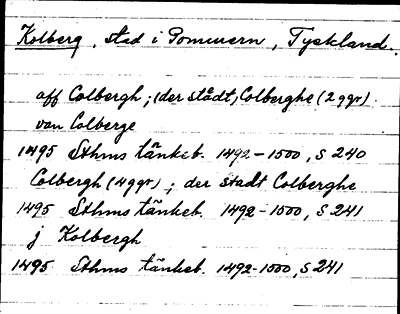 Kolberg, stad i Pommern, Tyskland.
aff Colbergh; (der stådt, Colberghe (2 ggr)
van Colberge
1495 Sthms tänkeb. 1492-1500, s 240
Colbergh (4 ggr); der stadt Colberghe
1495 Sthms tänkeb. 1492-1500, s 241
j Kolbergh
1495 Sthms tänkeb. 1492-1500, s 241